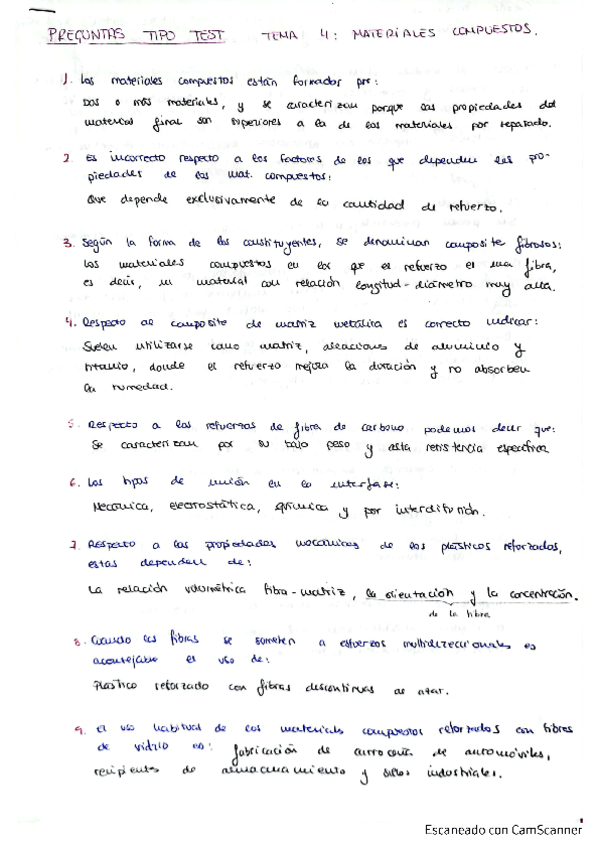 PREGUNTAS TIPO TEST TEMA 4: MATERIALES COMPUESTOS.
1. Los materiales compuestos están formados por:
Dos o más materiales, y se caracterizan porque las propiedades del
material final son superiores a la de los materiales por separado.
2. Es incorrecto respecto a los factores de los que dependen las pro-
piedades de los mat. compuestos:
Que depende exclusivamente de la cantidad de refuerzo.
3. Según la forma de los constituyentes, se denominan composite fibrosos:
Los materiales compuestos en los que el refuerzo es una fibra,
es decir, un material con relación longitud-diámetro muy alta.
4. Respecto al composite de matriz metálica es correcto indicar:
Suelen utilizarse como matriz, aleaciones de aluminio y
titanio, donde el refuerzo mejora la duración y no absorben
la humedad.
5. Respecto a los refuerzos de fibra de carbono podemos decir que:
Se caracterizan por su bajo peso y alta resistencia específica
6. Los tipos de unión en la interfase:
Mecánica, electrostática, química y por interdifusión.
7. Respecto a las propiedades mecánicas de los plásticos reforzados,
estas dependen de:
La relación volumétrica fibra-matriz, la orientación y la concentración.
de la fibra
8. Cuando las fibras se someten a esfuerzos multidireccionales es
aconsejable el uso de:
Plástico reforzado con fibras discontinuas al azar.
9. El uso habitual de los materiales compuestos reforzados con fibras
de vidrio es: fabricación de carrocería de automóviles,
recipientes de almacenamiento y industriales.
Escaneado con CamScanner